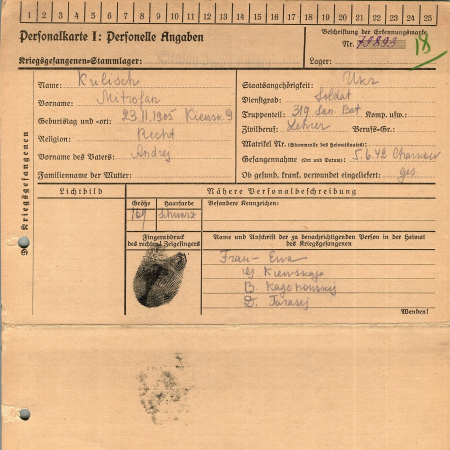 1 2 3 4 5 6 7 8 9 10 11 12 13 14 15 16 17 18 19 20 21 22 23 24 25
Personalkarte I: Personelle Angaben
Kriegsgefangenen-Stammlager:
Beschriftung der Erkennungsmarke
Nr.
18
Lager:
Des Kriegsgefangenen
Name: Kulisch
Vorname: Mitrofan
Geburtstag und -ort: 23.11.1905
Religion:
Vorname des Vaters: Andrej
Familienname der Mutter:
Staatsangehörigkeit: Ukr
Dienstgrad: Soldat
Truppenteil: 319 San. Bat Komp. usw.:
Zivilberuf: Lehrer Berufs-Gr.:
Matrikel Nr. (Stammrolle des Heimatstaates):
Gefangennahme (Ort und Datum): 5.6.42
Ob gesund, krank, verwundet eingeliefert: ges
Lichtbild
Nähere Personalbeschreibung
Größe
Haarfarbe
Besondere Kennzeichen:
169
schwarz
Fingerabdruck
des rechten Zeigefingers
Name und Anschrift der zu benachrichtigenden Person in der Heimat
des Kriegsgefangenen
Frau - Ewa
G. Kiewskaja
D. Tarasej
Wenden!